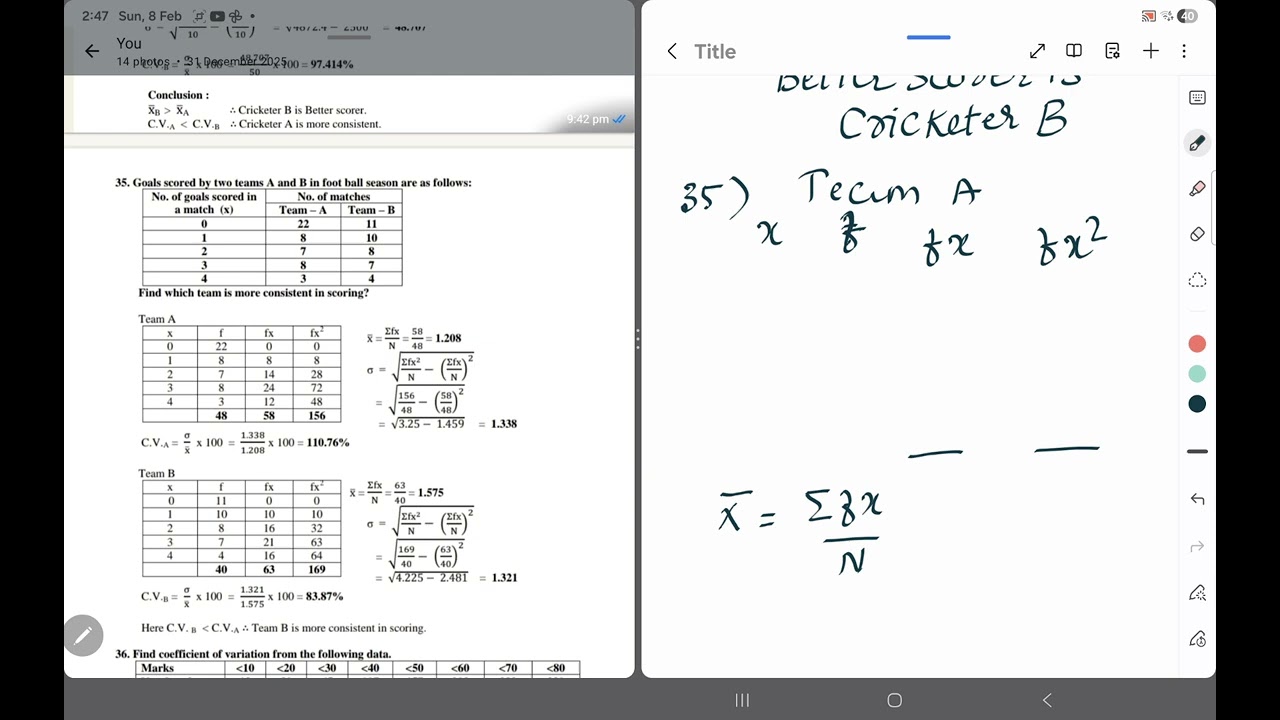 2:47 Sun, 8 Feb
You
14 photos • 31 December 2025
C.V.B = σ/x̄ x 100 = 48.707/50 x 100 = 97.414%
Conclusion :
X̄B > X̄A ∴ Cricketer B is Better scorer.
C.V.A < C.V.B ∴ Cricketer A is more consistent.
9:42 pm
35. Goals scored by two teams A and B in foot ball season are as follows:
No. of goals scored in a match (x) No. of matches
Team – A Team – B
0 22 11
1 8 10
2 7 8
3 8 7
4 3 4
Find which team is more consistent in scoring?
Team A
x f fx fx²
0 22 0 0
1 8 8 8
2 7 14 28
3 8 24 72
4 3 12 48
48 58 156
x̄ = Σfx/N = 58/48 = 1.208
σ = √(Σfx²/N − (Σfx/N)²)
= √(156/48 − (58/48)²)
= √3.25 − 1.459 = 1.338
C.V.A = σ/x̄ x 100 = 1.338/1.208 x 100 = 110.76%
Team B
x f fx fx²
0 11 0 0
1 10 10 10
2 8 16 32
3 7 21 63
4 4 16 64
40 63 169
x̄ = Σfx/N = 63/40 = 1.575
σ = √(Σfx²/N − (Σfx/N)²)
= √(169/40 − (63/40)²)
= √4.225 − 2.481 = 1.321
C.V.B = σ/x̄ x 100 = 1.321/1.575 x 100 = 83.87%
Here C.V. B < C.V.A ∴ Team B is more consistent in scoring.
36. Find coefficient of variation from the following data.
Marks <10 <20 <30 <40 <50 <60 <70 <80
40
Title
Better Scorer is
Cricketer B
35) Team A
x f fx fx²
x̄ = Σfx/N